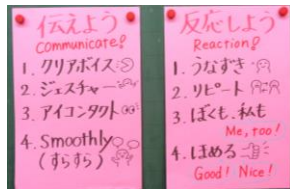 伝えよう
Communicate!
1. クリアボイス
2. ジェスチャー
3. アイコンタクト
4. Smoothly
(すらすら)
反応しよう
Reaction!
1. うなずき
2. リピート
3. ぼくも、私も
Me, too!
4. ほめる
Good! Nice!